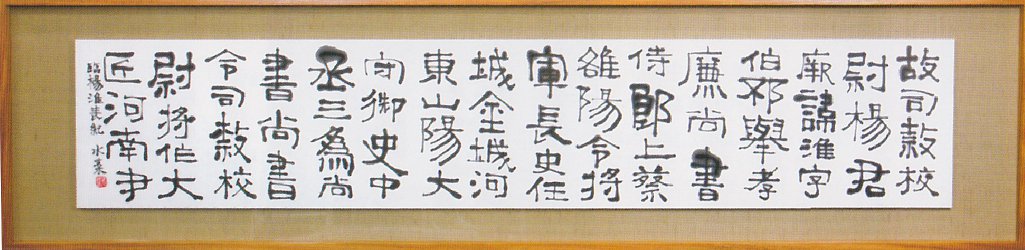 故司隸校
尉楊君
厥諱淮字
伯邳舉孝
廉尚書
侍郎上蔡
雒陽令將
軍長史任
城金城河
東山陽大
守御史中
丞三爲尚
書尚書
令司隸校
尉將作大
匠河南尹
臨楊淮表紀